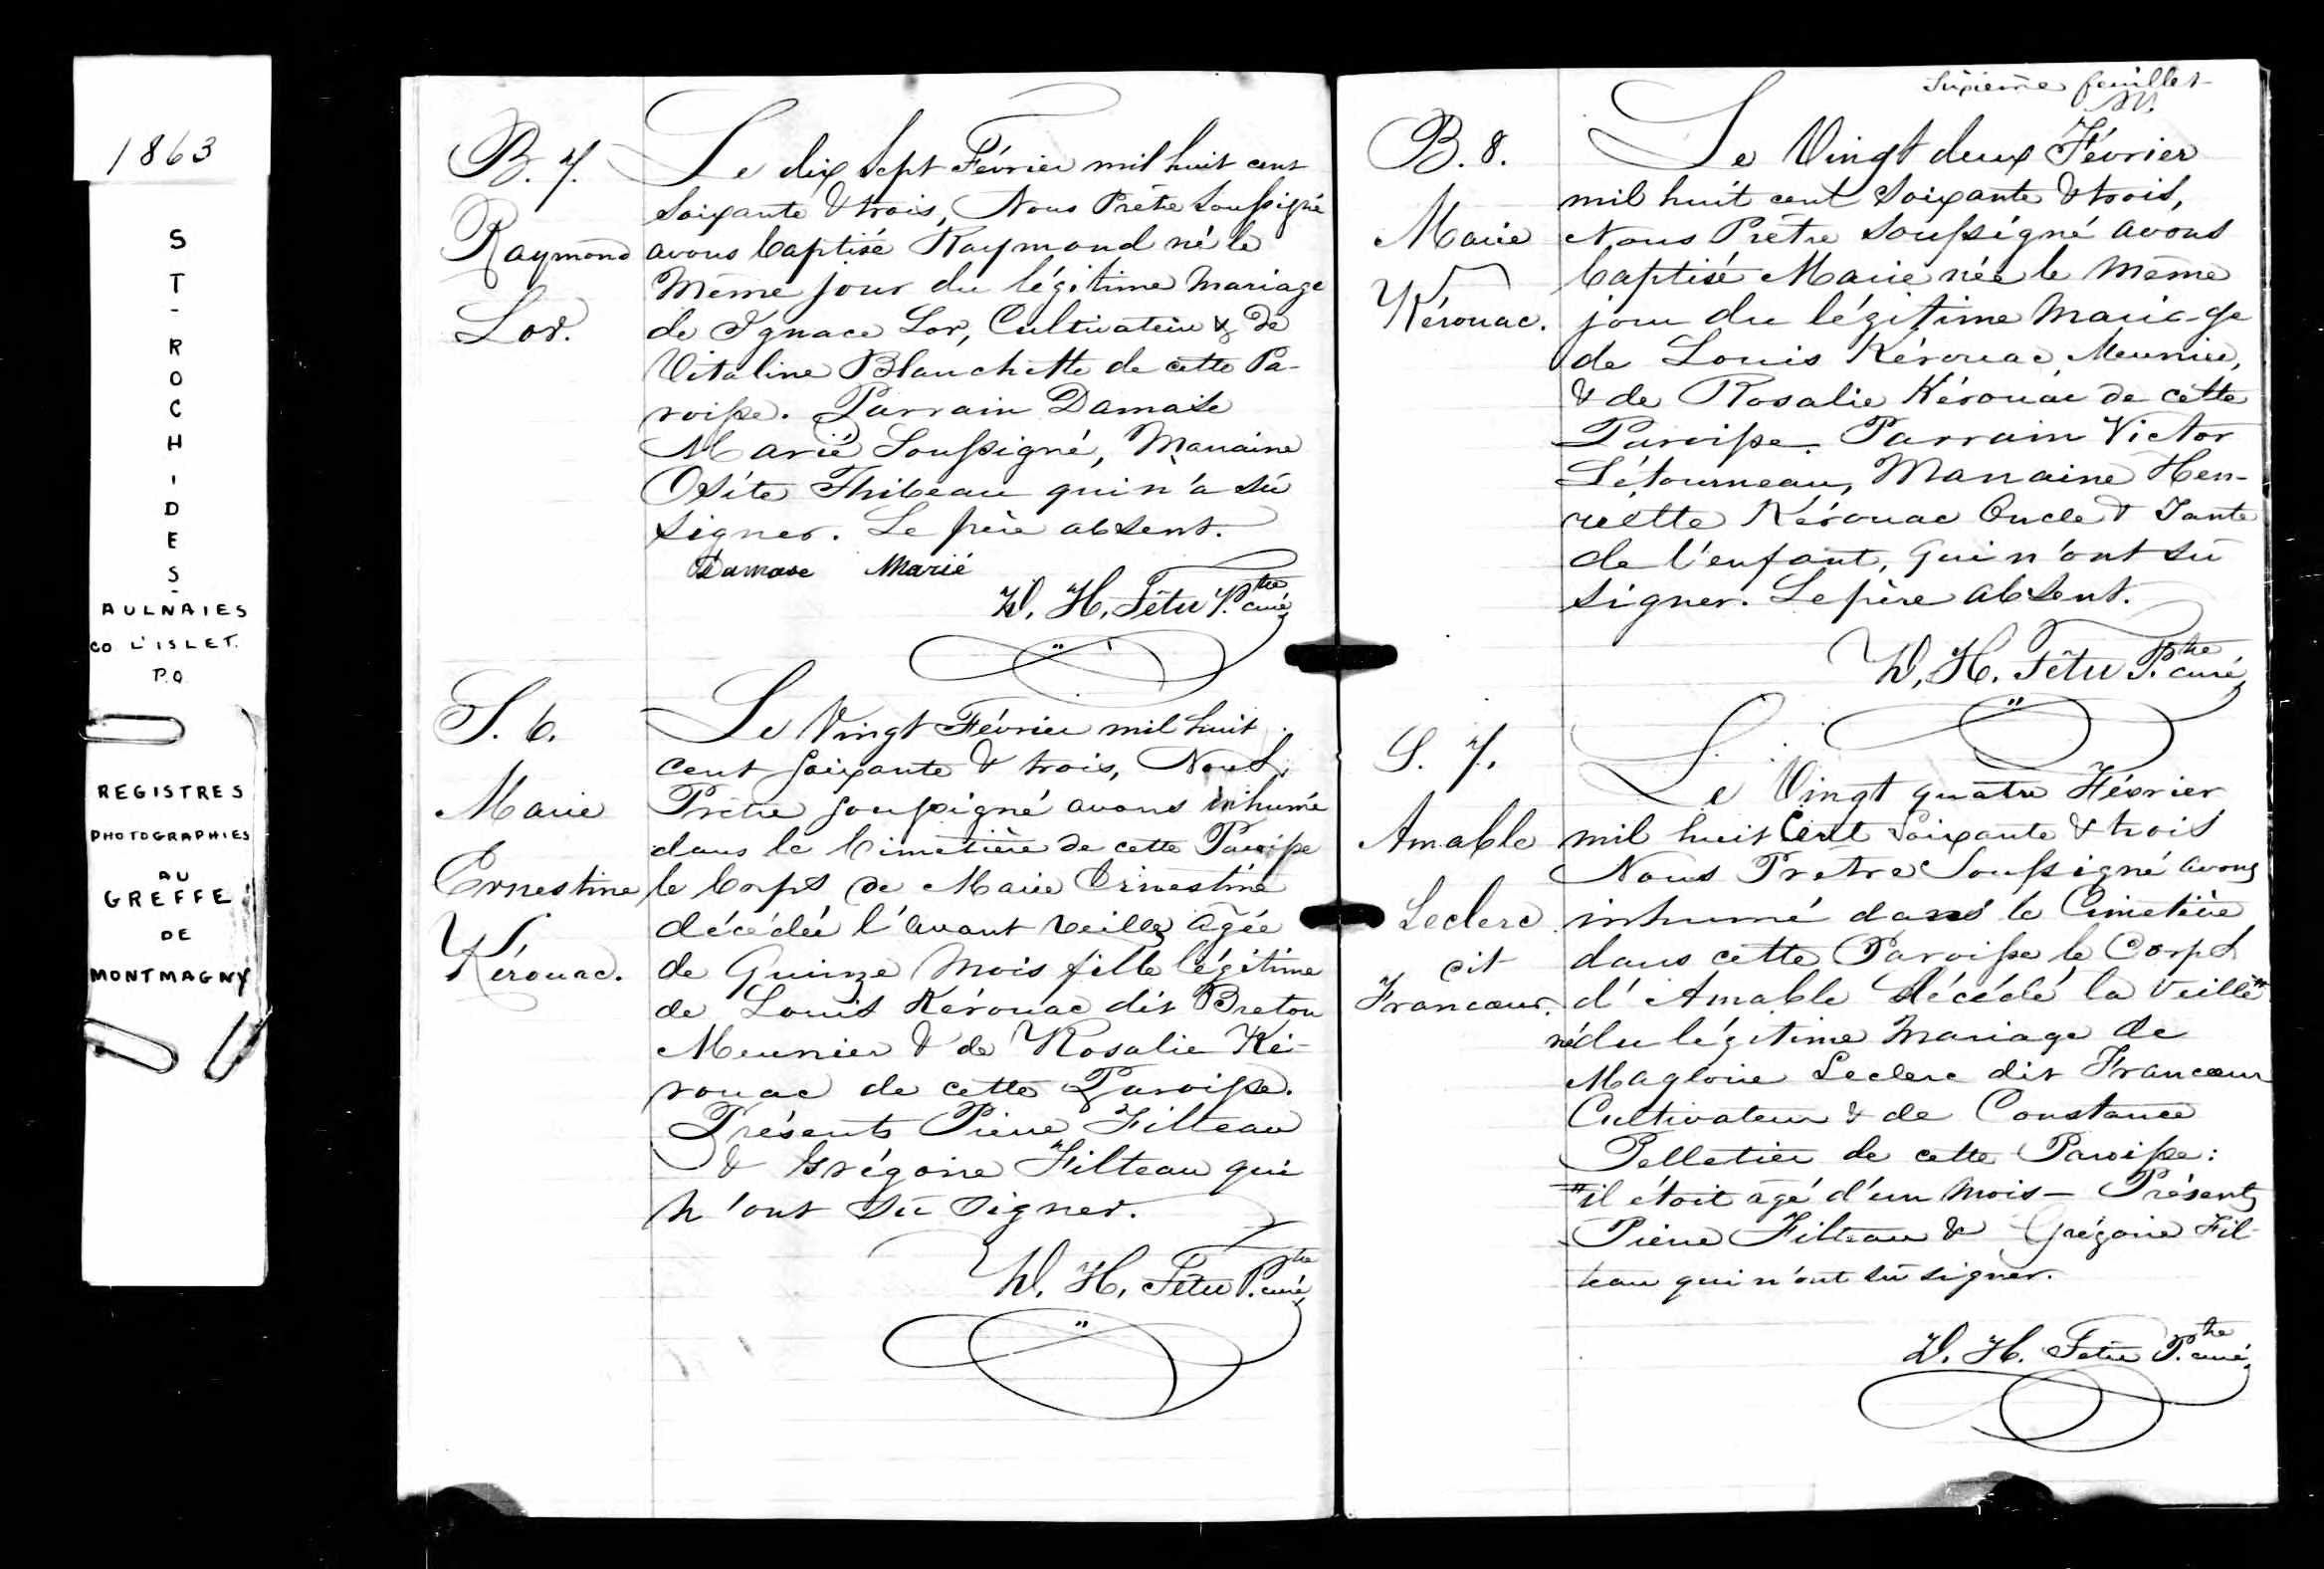 1863
ST-ROCH-DES-
AULNAIES
CO L'ISLET.
P.Q.
REGISTRES
PHOTOGRAPHIES
AU
GREFFE
DE
MONTMAGNY
B. 7.
Raymond
Lor.
Le dix Sept Février mil huit cent
soixante & trois, Nous Prêtre Soussigné
avons baptisé Raymond né le
Même jour du légitime Mariage
de Ignace Lor, Cultivateur & de
Vitaline Blanchette de cette Pa-
roisse. Parrain Damase
Marié Soussigné, Marraine
Osite Thibeau qui n'a sû
signer. Le père absent.
Damase Marié
D. H. Têtu Ptre curé
S. 6.
Marie
Ernestine
Kérouac.
Le Vingt Février mil huit
cent soixante & trois, Nous,
Prêtre soussigné avons inhumé
dans le Cimetière de cette Paroisse
le Corps de Marie Ernestine
décédée l'avant veille agée
de Quinze Mois fille légitime
de Louis Kérouac dit Breton
Meunier & de Rosalie Ké-
rouac de cette Paroisse.
Présents Pierre Filteau
& Grégoire Filteau qui
n'ont sû signer.
D. H. Têtu Ptre curé
Sixième feuillet
B. 8.
Marie
Kérouac.
Le Vingt deux Février
mil huit cent soixante & trois,
Nous Prêtre Soussigné avons
baptisé Marie née le même
jour du légitime Mariage
de Louis Kérouac, Meunier,
& de Rosalie Kérouac de cette
Paroisse. Parrain Victor
Létourneau, Marraine Hen-
riette Kérouac Oncle & Tante
de l'enfant, qui n'ont sû
signer. Le père absent.
D. H. Têtu Ptre curé
S. 7.
Amable
Leclerc
dit
Francoeur.
Le Vingt quatre Février
mil huit Cent Soixante & trois
Nous Prêtre Soussigné avons
inhumé dans le Cimetière
dans cette Paroisse le Corps
d'Amable décédé la veille"
né du légitime Mariage de
Magloire Leclerc dit Francoeur
Cultivateur & de Constance
Pelletier de cette Paroisse:
"il étoit agé d'un mois — Présents
Pierre Filteau & Grégoire Fil-
teau qui n'ont sû signer.
D. H. Têtu Ptre curé